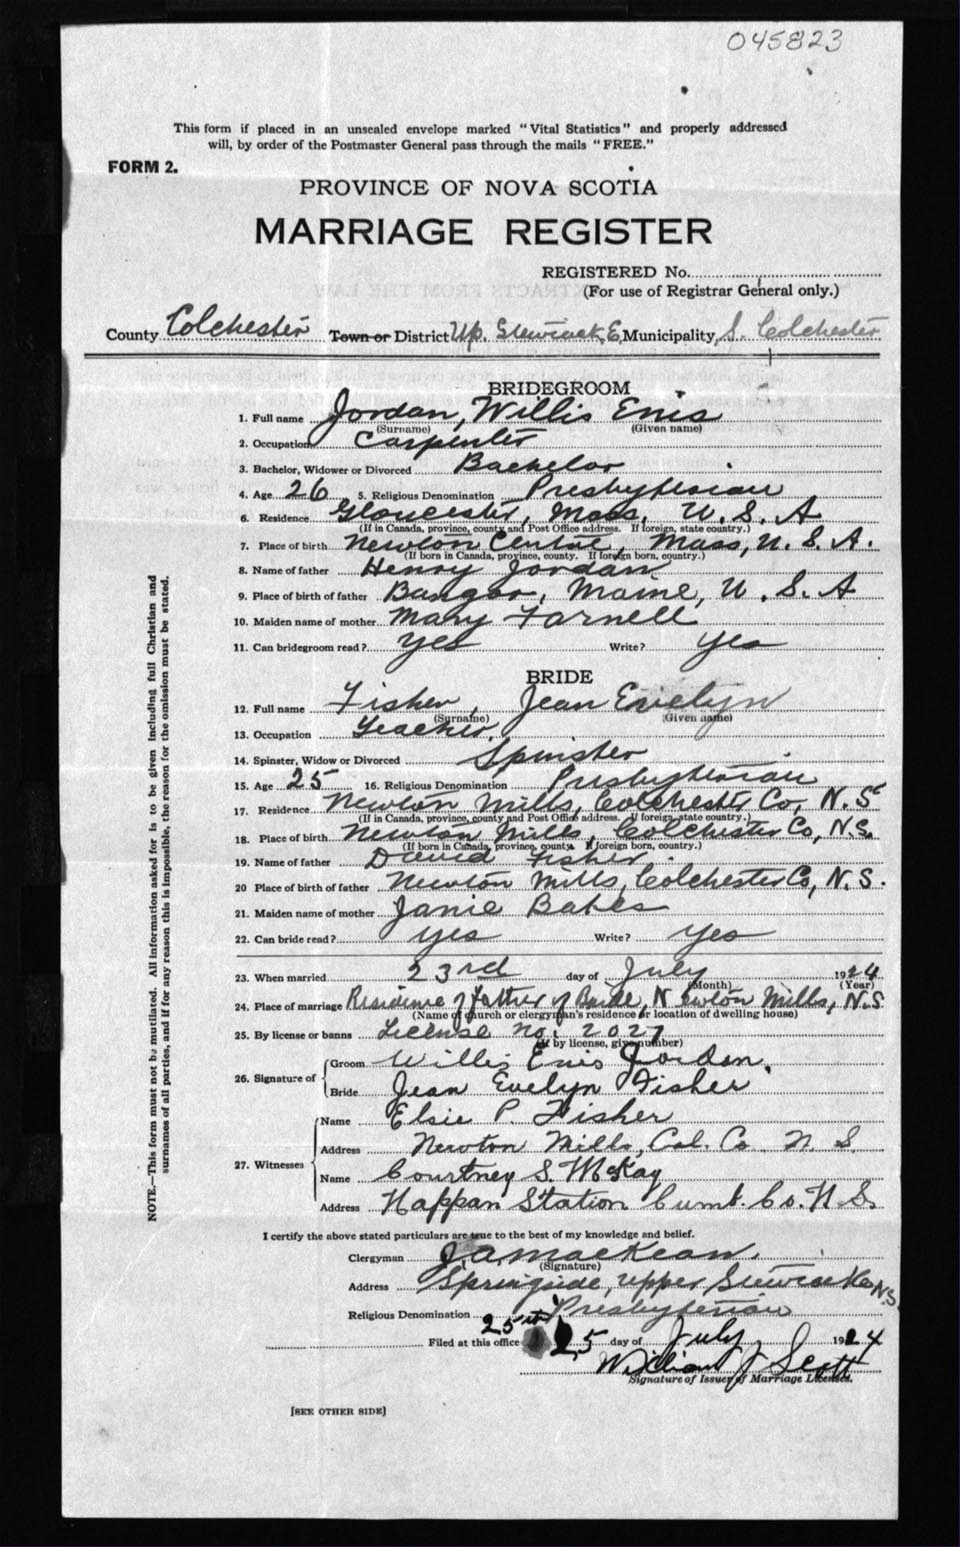 045823
This form if placed in an unsealed envelope marked "Vital Statistics" and properly addressed
will, by order of the Postmaster General pass through the mails "FREE."
FORM 2.
PROVINCE OF NOVA SCOTIA
MARRIAGE REGISTER
REGISTERED No.
(For use of Registrar General only.)
County Colchester Town or District Up. Stewiack E, Municipality, S. Colchester
BRIDEGROOM
1. Full name Jordan, Willis Enis
(Surname) (Given name)
2. Occupation Carpenter
3. Bachelor, Widower or Divorced Bachelor
4. Age 26 5. Religious Denomination Presbyterian
6. Residence Gloucester, Mass, U. S. A
(If in Canada, province, county and Post Office address. If foreign, state country.)
7. Place of birth Newton Centre, Mass, U. S. A.
(If born in Canada, province, county. If foreign born, country.)
8. Name of father Henry Jordan
9. Place of birth of father Bangor, Maine, U. S. A
10. Maiden name of mother Mary Farnell
11. Can bridegroom read? yes Write? yes
BRIDE
12. Full name Fisher, Jean Evelyn
(Surname) (Given name)
13. Occupation Teacher
14. Spinster, Widow or Divorced Spinster
15. Age 25 16. Religious Denomination Presbyterian
17. Residence Newton Mills, Colchester Co, N. S
(If in Canada, province, county and Post Office address. If foreign, state country.)
18. Place of birth Newton Mills, Colchester Co, N.S.
(If born in Canada, province, county. If foreign born, country.)
19. Name of father David Fisher.
20 Place of birth of father Newton Mills, Colchester Co, N. S.
21. Maiden name of mother Janie Bates
22. Can bride read? yes Write? yes
23. When married 23rd day of July 1924
(Month) (Year)
24. Place of marriage Residence of Father of Bride, Newton Mills, N.S
(Name of church or clergyman's residence or location of dwelling house)
25. By license or banns License no. 2027
(If by license, give number)
26. Signature of Groom Willis Enis Jordan.
Bride Jean Evelyn Fisher
27. Witnesses Name Elsie P. Fisher
Address Newton Mills, Col. Co. N S
Name Courtney S. McKay
Address Nappan Station Cumb. Co. N. S.
I certify the above stated particulars are true to the best of my knowledge and belief.
Clergyman J. A. MacKean.
(Signature)
Address Springside, Upper Stewiacke N.S
Religious Denomination Presbyterian
25th
Filed at this office 25 day of July 1924
William J Scott
Signature of Issuer of Marriage Licenses.
[SEE OTHER SIDE]
NOTE.—This form must not be mutilated. All information asked for is to be given including full Christian and
surnames of all parties, and if for any reason this is impossible, the reason for the omission must be stated.